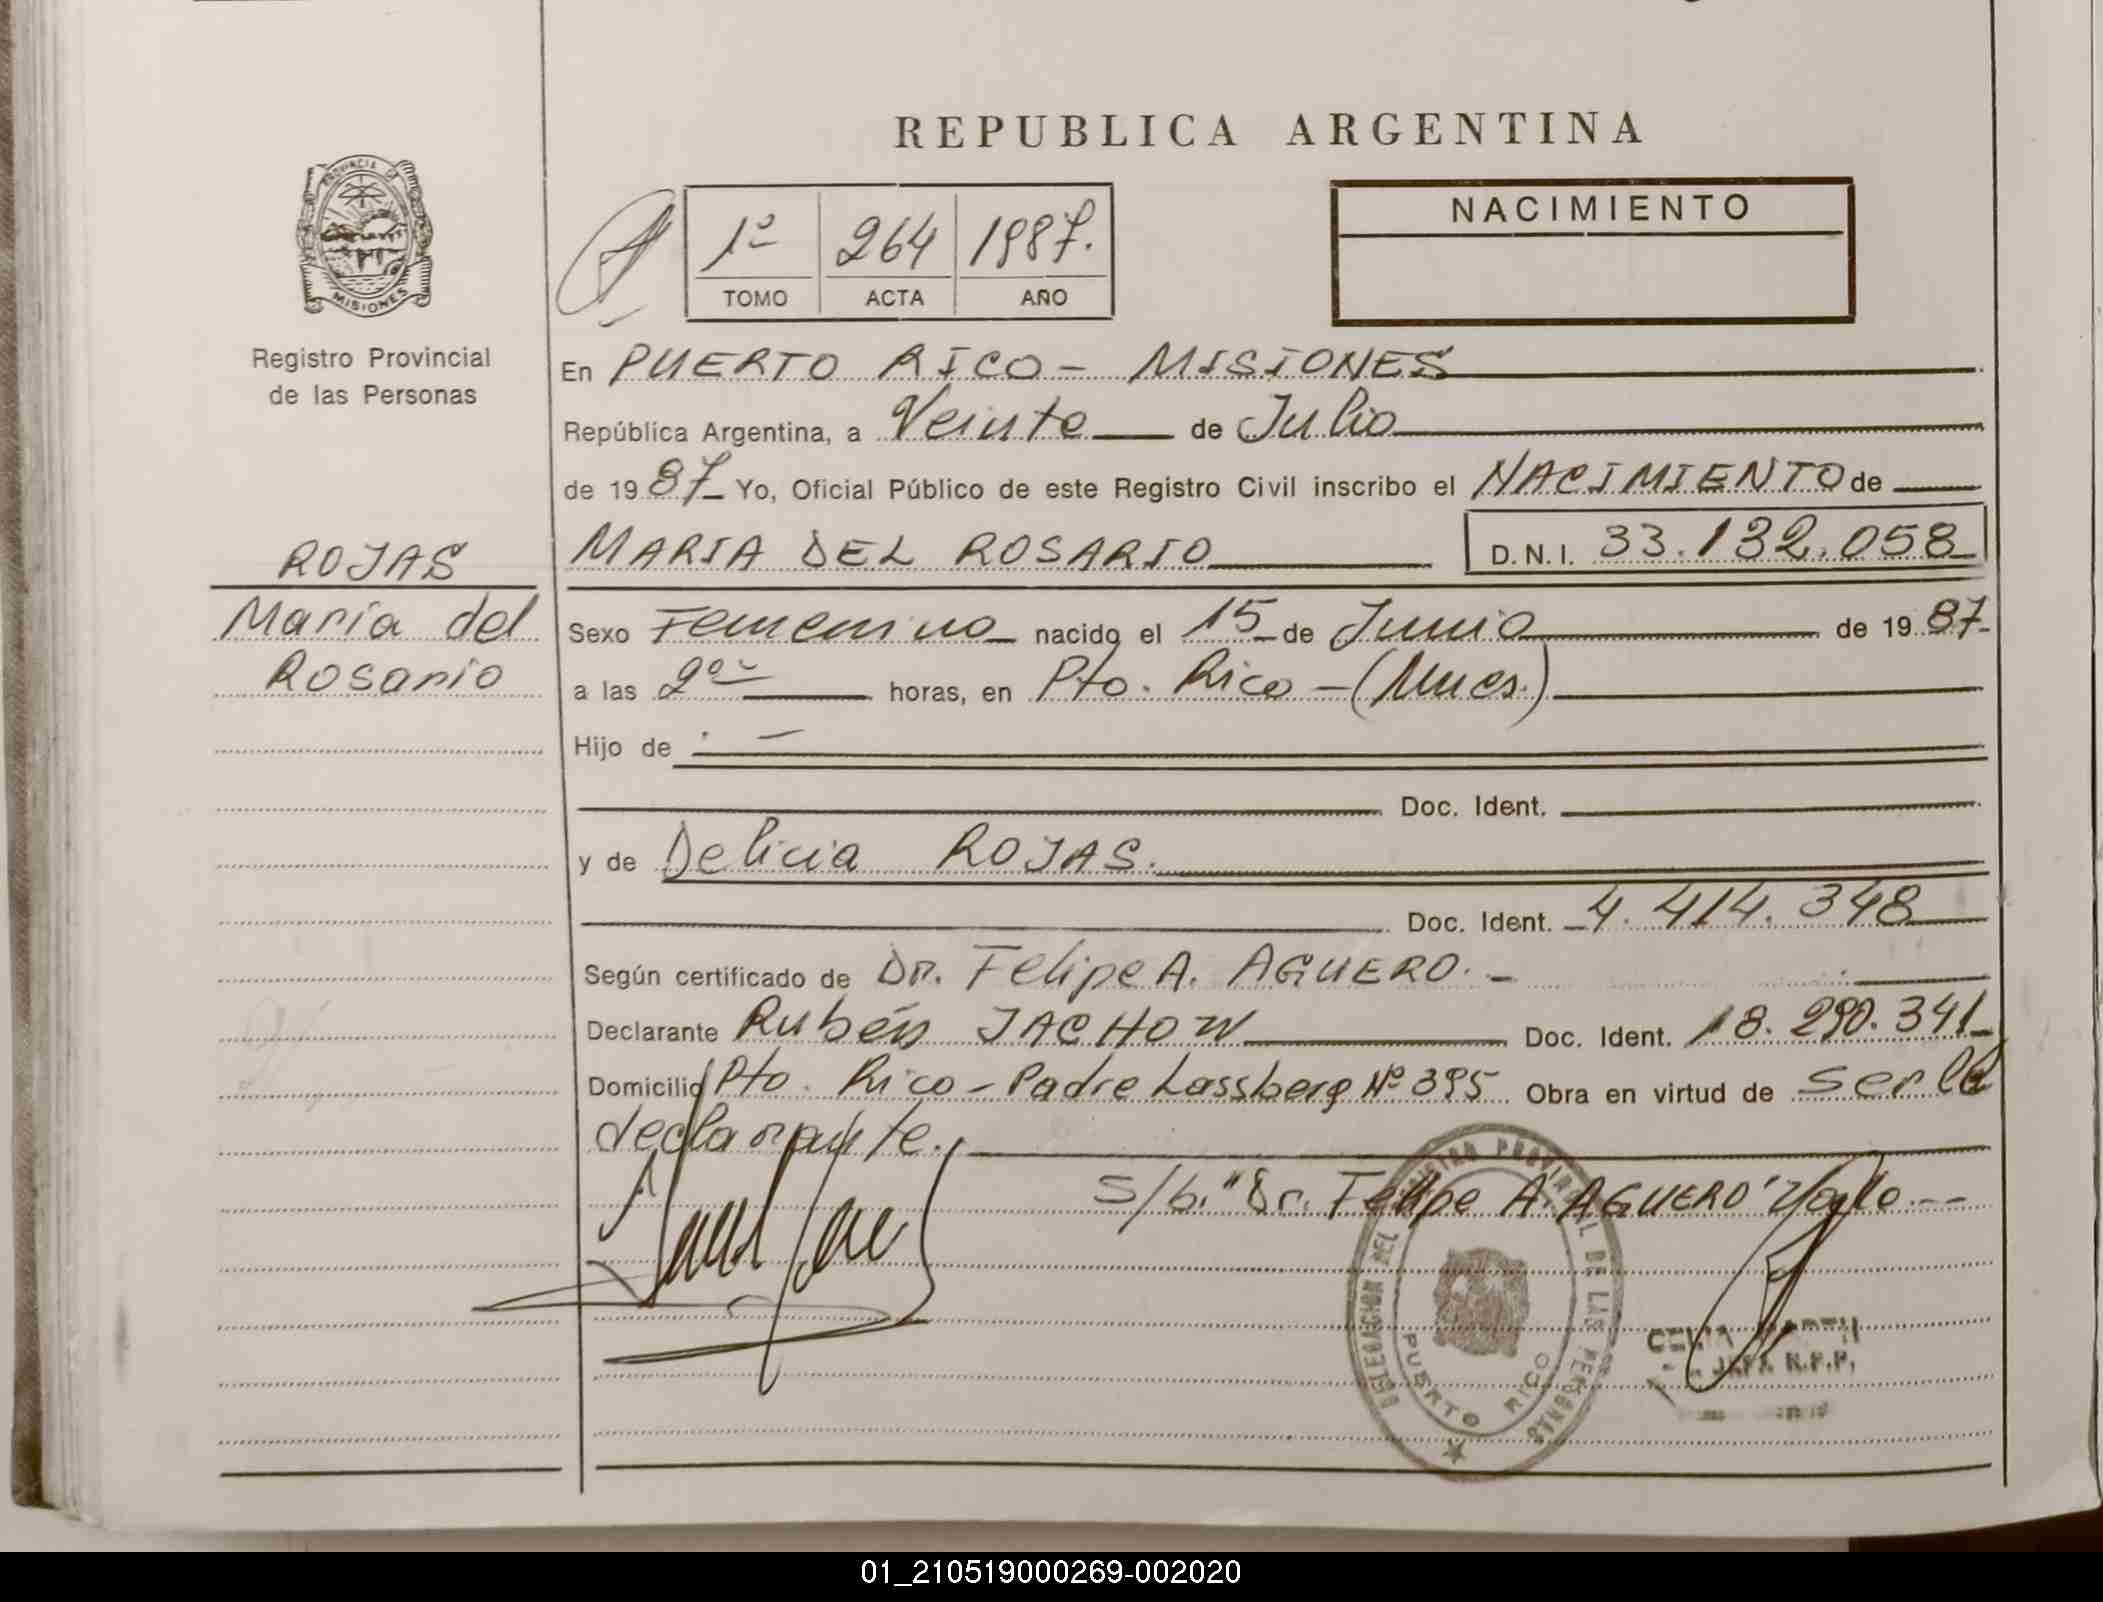 REPUBLICA ARGENTINA
PROVINCIA DE
MISIONES
Registro Provincial
de las Personas
1º 264 1987.
TOMO ACTA AÑO
NACIMIENTO
En PUERTO RICO - MISIONES
República Argentina, a Veinte de Julio
de 1987 Yo, Oficial Público de este Registro Civil inscribo el NACIMIENTO de
ROJAS
María del
Rosario
MARIA DEL ROSARIO D.N.I. 33.132.058
Sexo Femenino nacido el 15 de Junio de 1987-
a las horas, en Pto. Rico -
Hijo de . -
Doc. Ident.
y de Delicia ROJAS.
Doc. Ident. 4.414.348
Según certificado de Dr. Felipe A. AGUERO. -
Declarante Rubén JACHOW Doc. Ident. 18.290.341
Domicilio Pto. Rico - Padre Lassberg Nº 395 Obra en virtud de ser la
declarante.
S/b. "Dr. Felipe A. AGUERO" Vale. --
DELEGACION DEL REGISTRO PROVINCIAL DE LAS PERSONAS
PUERTO RICO
JEFA R.P.P.
01_210519000269-002020